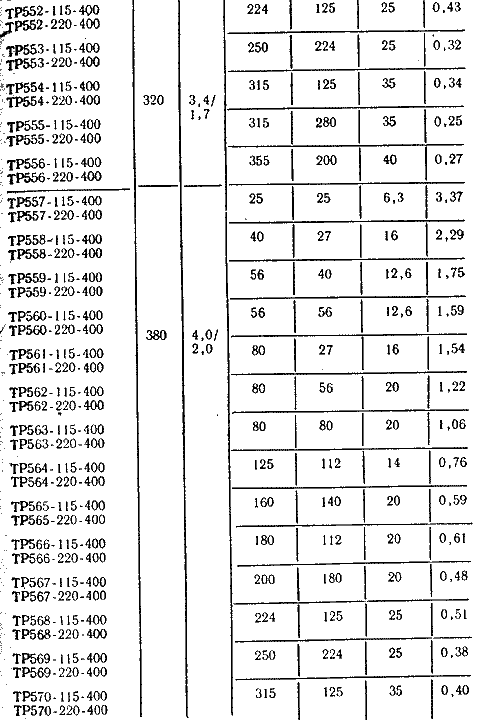 ТР552-115-400 224 125 25 0,43
ТР552-220-400
ТР553-115-400 250 224 25 0,32
ТР553-220-400
ТР554-115-400 315 125 35 0,34
ТР554-220-400 320 3,4/
1,7
ТР555-115-400 315 280 35 0,25
ТР555-220-400
ТР556-115-400 355 200 40 0,27
ТР556-220-400
ТР557-115-400 25 25 6,3 3,37
ТР557-220-400
ТР558-115-400 40 27 16 2,29
ТР558-220-400
ТР559-115-400 56 40 12,6 1,75
ТР559-220-400
ТР560-115-400 56 56 12,6 1,59
ТР560-220-400 380 4,0/
2,0
ТР561-115-400 80 27 16 1,54
ТР561-220-400
ТР562-115-400 80 56 20 1,22
ТР562-220-400
ТР563-115-400 80 80 20 1,06
ТР563-220-400
ТР564-115-400 125 112 14 0,76
ТР564-220-400
ТР565-115-400 160 140 20 0,59
ТР565-220-400
ТР566-115-400 180 112 20 0,61
ТР566-220-400
ТР567-115-400 200 180 20 0,48
ТР567-220-400
ТР568-115-400 224 125 25 0,51
ТР568-220-400
ТР569-115-400 250 224 25 0,38
ТР569-220-400
ТР570-115-400 315 125 35 0,40
ТР570-220-400